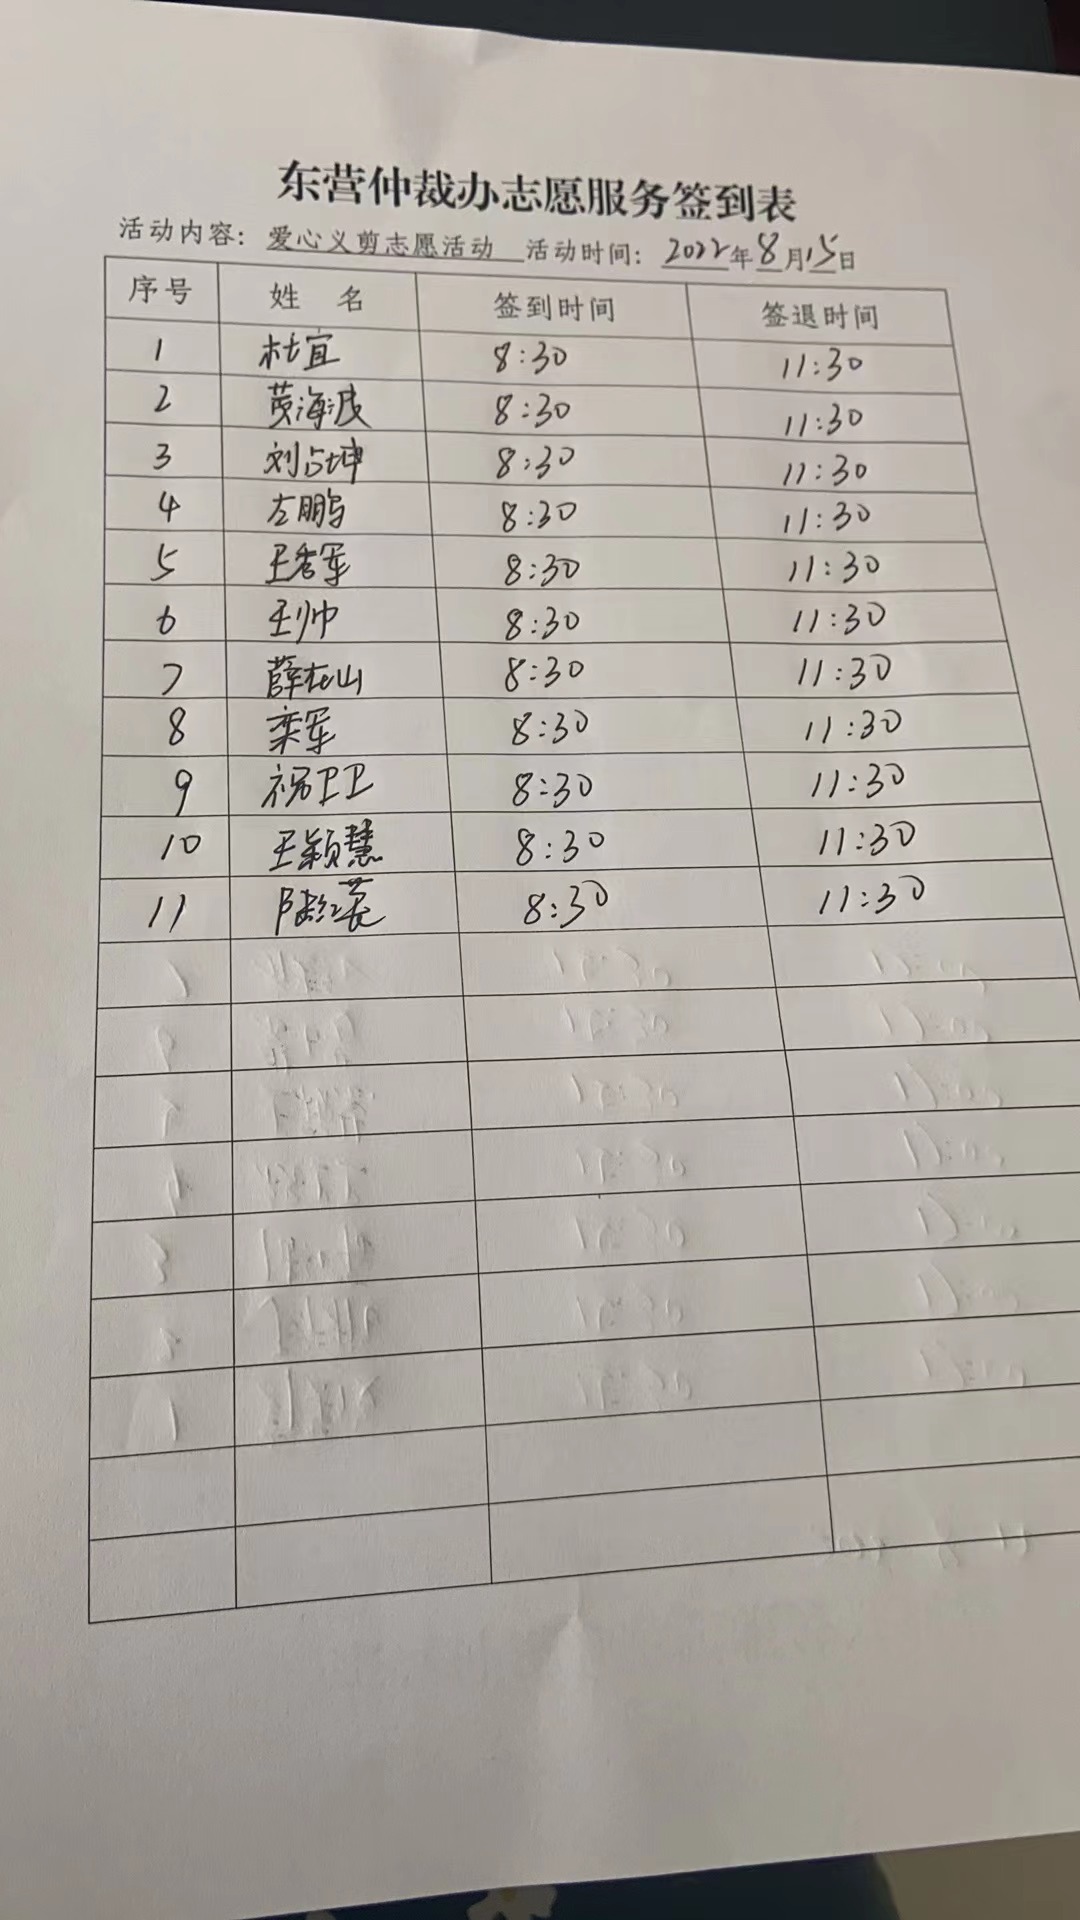 东营仲裁办志愿服务签到表
活动内容：爱心义剪志愿活动 活动时间：2022年8月15日
序号 姓 名 签到时间 签退时间
1 杜宜 8:30 11:30
2 黄海波 8:30 11:30
3 刘占坤 8:30 11:30
4 左鹏 8:30 11:30
5 王秀军 8:30 11:30
6 王帅 8:30 11:30
7 薛在山 8:30 11:30
8 栾军 8:30 11:30
9 祝卫卫 8:30 11:30
10 王颖慧 8:30 11:30
11 8:30 11:30